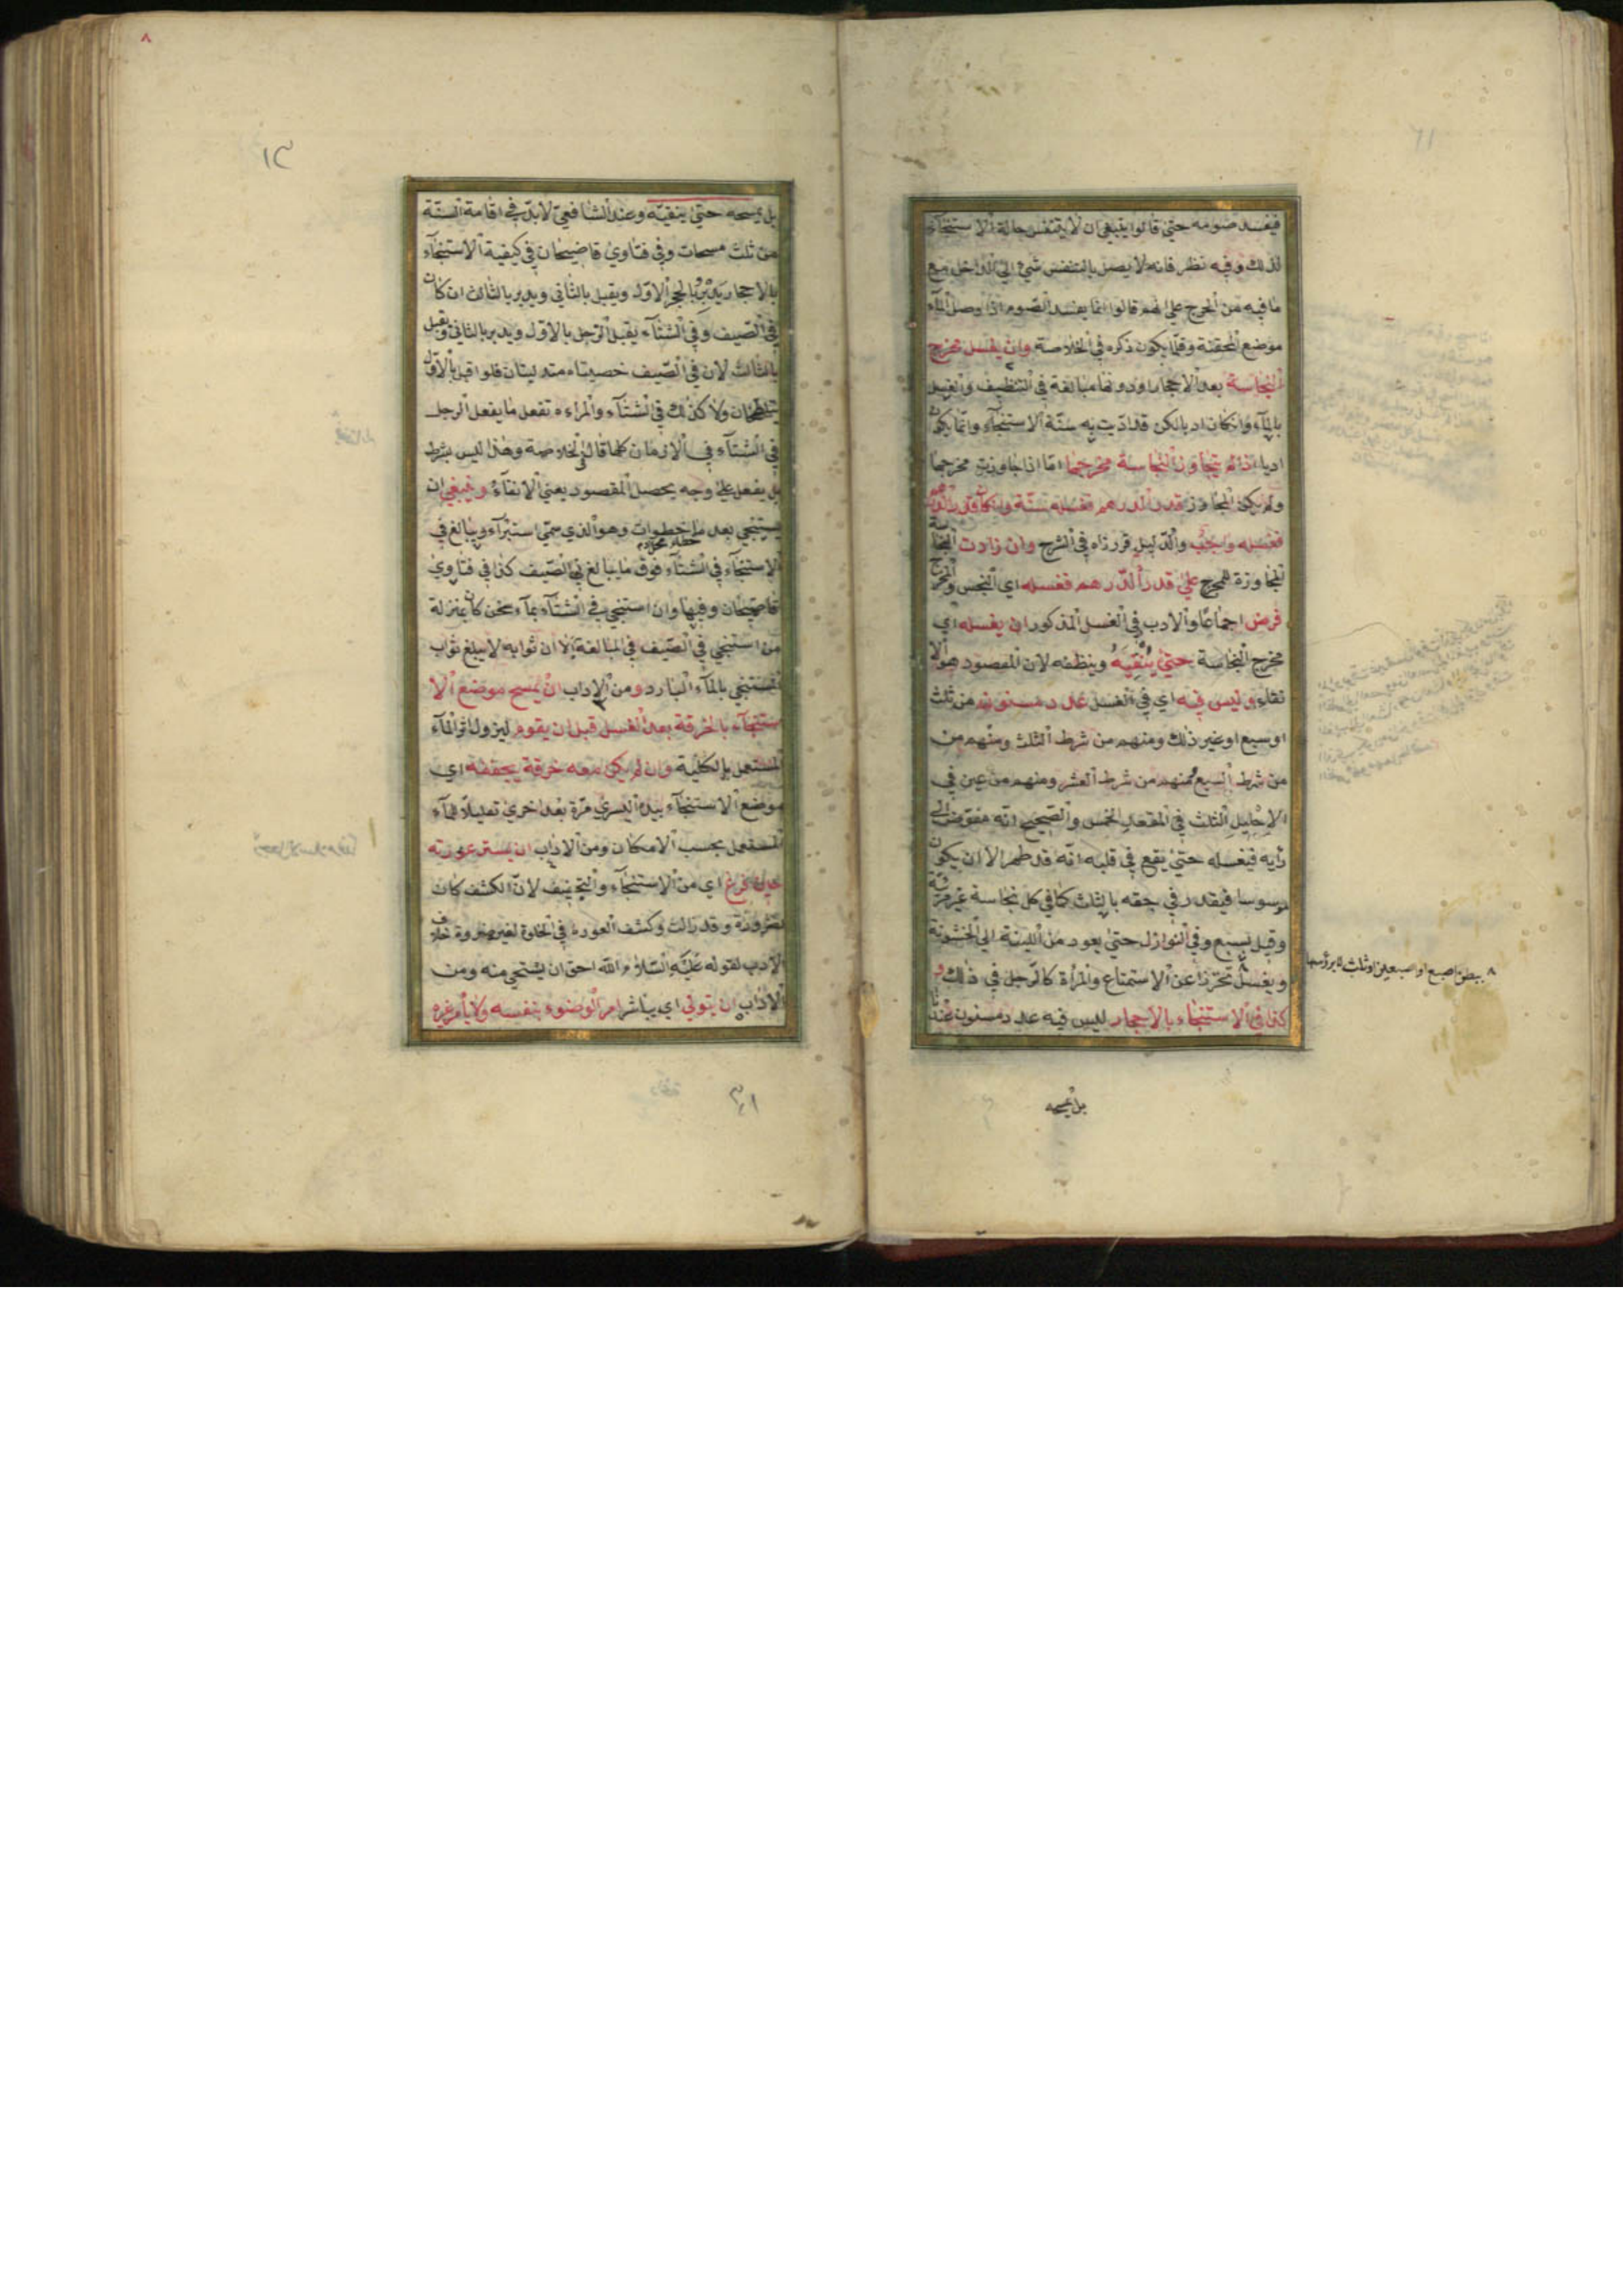 فيفسد صومه حتى قالوا ينبغي ان لا يتنفس حالة الاستنجاء
لذلك وفيه نظر فانه لا يصل بالتنفس شيء الى الداخل مع
ما فيه من الحرج على انهم قالوا انما يفسد الصوم اذا وصل الماء
موضع المحقنة وقلما يكون ذكره في الخلاصة وان يغسل مخرج
النجاسة بعد الاحجار او دونها مبالغة في التنظيف والغسل
بالماء وان كان ادبا لكن قد ادّيت به سنّة الاستنجاء وانّما يكون
ادبا اذا لم يتجاوز النجاسة مخرجها امّا اذا جاوزت مخرجها
ولم يكن المجاوز قدر الدرهم فغسله سنّة وان كان قدر الدرهم
فغسله واجب والدّليل قررناه في الشرح وان زادت النجاسة
المجاوزة للمخرج على قدر الدّرهم فغسله اي النجس والمخرج
فرض اجماعا والادب في الغسل المذكور ان يغسله اي
مخرج النجاسة حتى يُنْقِيَهُ وينظفه لان المقصود هو الا
نقاء وليس فيه اي في الغسل عدد مسنون من ثلث
او سبع او غير ذلك ومنهم من شرط الثلث ومنهم من
من شرط السبع ومنهم من شرط العشر ومنهم من عين في
الاحليل الثلث في المقعد الخمس والصّحيح انّه مفوّض الى
رأيه فيغسله حتى يقع في قلبه انّه قد طهر الا ان يكون
موسوسا فيقدر في حقه بالثلث كما في كل نجاسة غير مرئية
وقيل بسبع وفي النوازل حتى يعود من اللينة الى الخشونة
ويغسل تحرّزا عن الاستمتاع والمرأة كالرّجل في ذلك و
كذا في الاستنجاء بالاحجار ليس فيه عدد مسنون عندنا
ببطن اصبع او اصبعين او ثلث لا برؤسها
بل يمسحه
بل يمسحه حتى ينقيّه وعند الشافعيّ لا بدّ في اقامة السنّة
من ثلث مسحات وفي فتاوى قاضيخان في كيفية الاستنجاء
بالاحجار يدبر بالحجر الاوّل ويقبل بالثاني ويدبر بالثالث ان كان
في الصّيف وفي الشتاء يقبل الرّجل بالاوّل ويدبر بالثاني ويقبل
بالثالث لان في الصّيف خصيتاه متدليتان فلو اقبل بالاوّل
يتلطخان ولا كذلك في الشتاء والمراءه تفعل ما يفعل الرجل
في الشتاء في الازمان كلها قال في الخلاصة وهذا ليس بشرط
بل يفعل على وجه يحصل المقصود يعني الانقاء وينبغي ان
يستنجي بعد ما خطا خطوات وهو الذي سمّي استبراء ويبالغ في
الاستنجاء في الشتاء فوق ما يبالغ في الصّيف كذا في فتاوى
قاضيخان وفيها وان استنجى في الشتاء بماء سخن كان بمنزلة
من استنجى في الصّيف في المبالغة الا ان ثوابه لا يبلغ ثواب
المستنجي بالماء البارد ومن الاداب ان يمسح موضع الا
ستنجاء بالخرقة بعد الغسل قبل ان يقوم ليزول اثر الماء
المستعمل بالكلية وان لم يكن معه خرقة يجففه اي
موضع الاستنجاء بيده اليسرى مرّة بعد اخرى تقليلا للماء
المستعمل بحسب الامكان ومن الاداب ان يستر عورته
حين فرغ اي من الاستنجاء والتجفيف لانّ الكشف كان
لضرورة وقد زالت وكشف العورة في الخلوة لغير ضرورة خلاف
الادب لقوله عليه السّلام الله احق ان يستحي منه ومن
الاداب ان يتولى اي يباشر امر الوضوء بنفسه ولا يأمر غيره